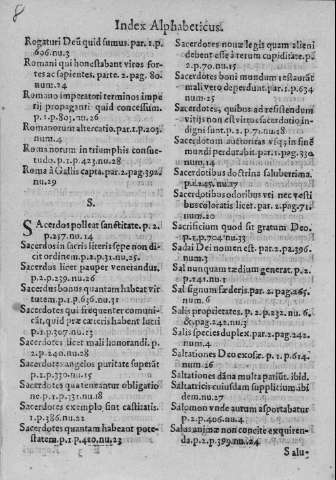 8
Index Alphabeticus.
Rogaturi Deū quid sumus. par. 1. p.
606. nu. 3
Romani qui honestabant viros for-
tes ac sapientes. parte. 2. pag. 80.
num. 24
Romano imperatori terminos impe
rij propaganti quid concessum.
p. 1. p. 803. nu. 26
Romanorum altercatio. par. 1. p. 203.
num. 4
Romanorum in triumphis consue-
tudo. p. 1. p. 423. nu. 28
Roma à Gallis capta. par. 2. pag. 392.
nu. 29
S.
SAcerdos polleat sanctitate. p. 2.
p. 257. nu. 14
Sacerdos in sacris literis sepe non di-
citur ordinem. p. 2. p. 31. nu. 25.
Sacerdos licet pauper venerandus.
p. 2. p. 239. nu. 26
Sacerdos bonus quantam habeat vir
tutem. p. 1. p. 636. nu. 31
Sacerdotes qui frequenter comuni-
cāt, quid præ cæteris habent lucri
p. 1. p. 307. nu. 13
Sacerdotes licet mali honorandi. p.
2. p. 240. nu. 28
Sacerdotes angelos puritate superāt
p. 2. p. 330. nu. 15
Sacerdotes qua teneantur obligatio
ne. p. 1. p. 131. nu. 18
Sacerdotes exemplo sint castitatis.
1. p. 386. nu. 12
Sacerdotes quantam habeant pote-
statem. p. 1. p. 420. nu. 23
Sacerdotes nouæ legis quam alieni
debent esse à rerum cupiditate. p.
2. p. 70. nu. 15
Sacerdotes boni mundum restaurāt
mali vero deperdunt. par. 1. p. 634
num. 25
Sacerdotes, quibus ad resistendum
vitijs non est virtus sacerdotio in-
digni sunt. p. 2. p. 71. nu. 28
Sacerdotum auctoritas vsq; in finē
mundi perdurabit. par. 1. pag. 330.
num. 14
Sacerdotibus doctrina saluberrima.
p. 1. 245. nu. 27
Sacerdotibus odoribus vti nec vesti
bus coloratis licet. par. 2. pag. 71.
num. 20
Sacrificium quod sit gratum Deo.
p. 1. p. 704. nu. 33
Sadai Dei nomen est. par. 2. pa. 396.
num. 3
Sal nunquam tædium generat. p. 2.
p. 141. nu. 1
Sal signum fæderis. par. 2. pag. 265.
num. 6
Salis proprietates. p. 2. p. 232. nu. 6.
& pag. 242. nu. 3
Salis species duplex. par. 2. pag. 242.
num. 4
Saltationes Deo exosæ. p. 1. p. 614.
num. 26
Saltationes dāna multa pariūt. ibid.
Saltatricis cuiusdam supplicium ibi
dem. nu. 27
Salomon vnde aurum asportabatur
p. 2. p. 406. nu. 4
Salus animæ non concite exquiren-
da. p. 2. p. 389. nu. 24
Salu-